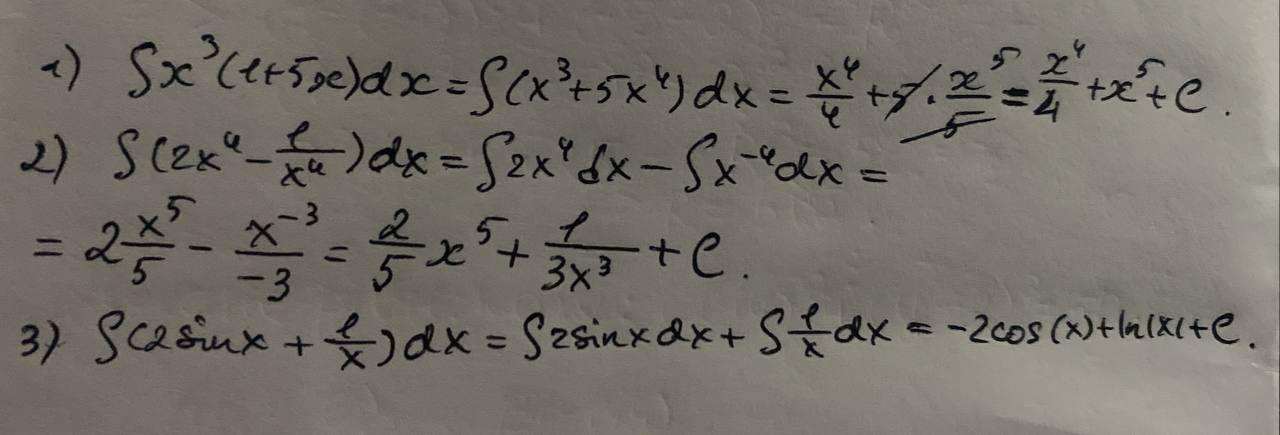 1) ∫x³(1+5x)dx = ∫(x³+5x⁴)dx = x⁴/4 + 5·x⁵/5 = x⁴/4 + x⁵ + C.
2) ∫(2x⁴ - 1/x⁴)dx = ∫2x⁴dx - ∫x⁻⁴dx =
= 2 x⁵/5 - x⁻³/-3 = 2/5 x⁵ + 1/3x³ + C.
3) ∫(2sinx + 1/x)dx = ∫2sinxdx + ∫1/x dx = -2cos(x)+ln|x|+C.